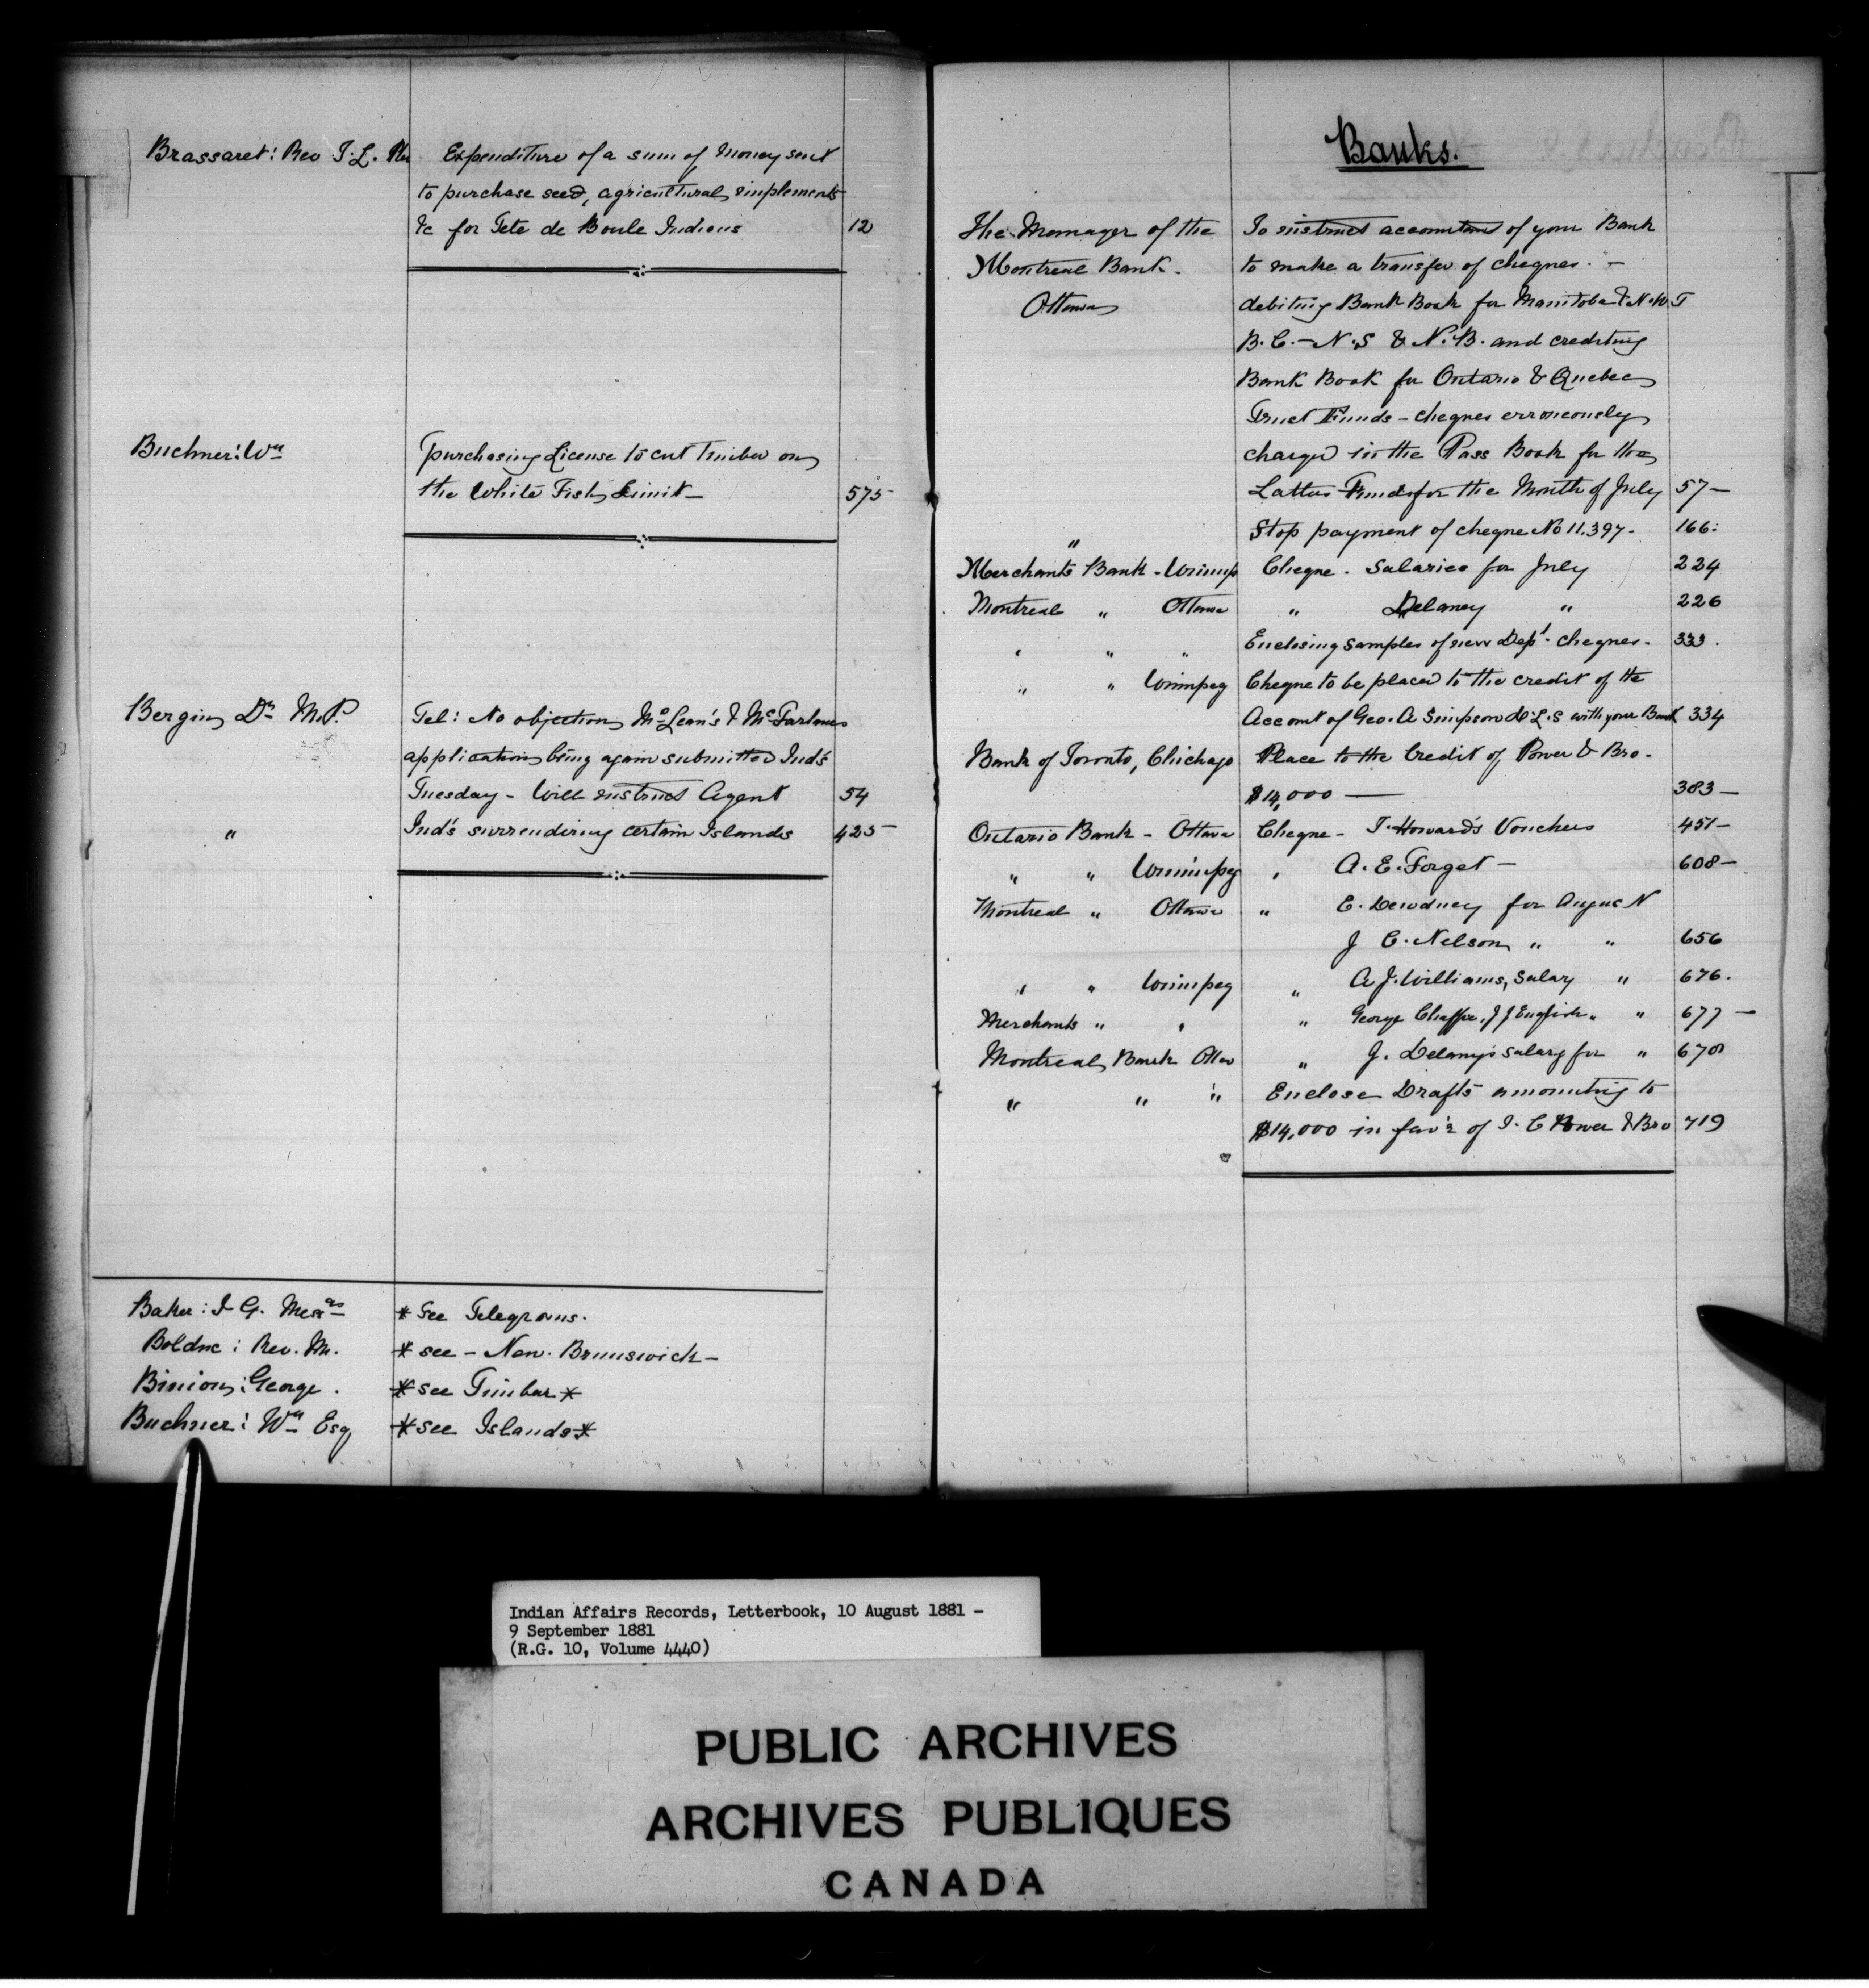 Brassaret: Rev T. L. Expenditure of a sum of Money sent
to purchase seed, agricultural implements
&c for Tete de Boule Indians 12
Buchner: Wm purchasing License to cut Timber on
the White Fish Limit – 575
Bergin, Dr M.P. Tel: No objection, McLean's & McFarlane's
application being again submitted Ind's
Tuesday – Will instruct Agent 54
" Ind's surrendering certain Islands 425
Baker: I G. Messrs * See Telegrams.
Bolduc: Rev. M. * see – New. Brunswick –
Binion: George. * see Timber *
Buchner: Wm Esq * see Islands *
Banks.
The Manager of the To instruct accountant of your Bank
Montreal Bank. to make a transfer of cheques. –
Ottawa debiting Bank Book for Manitoba & N.W T
B.C. – N.S & N.B. and crediting
Bank Book for Ontario & Quebec
Trust Funds – cheques erroneously
charged in the Pass Book for the
Latter Funds for the Month of July 57 –
" Stop payment of cheque No 11.397 – 166:
Merchants Bank – Winnip Cheque. Salaries for July 224
Montreal " Ottawa " Delaney " 226
" " " Enclosing samples of new Dept. cheques – 333.
" " Winnipeg Cheque to be placed to the credit of the
Account of Geo. A Simpson D.L.S with your Bank 334
Bank of Toronto, Chichago Place to the Credit of Power & Bro.
$14,000 — 383 –
Ontario Bank – Ottawa Cheque – T. Howard's Vouchers 451 –
" " Winnipeg " A. E. Forget – 608 –
Montreal " Ottawa " E. Dewdney for August
J C. Nelson " " 656
" " Winnipeg " A J. Williams, Salary " 676.
Merchants " " " George J J English " " 677 –
Montreal Bank Ottaw " J. Delany's salary for " 678
" " " Enclose Drafts amounting to
$14,000 in fav'r of I. C Power & Bro 719
Indian Affairs Records, Letterbook, 10 August 1881 –
9 September 1881
(R.G. 10, Volume 4440)
PUBLIC ARCHIVES
ARCHIVES PUBLIQUES
CANADA